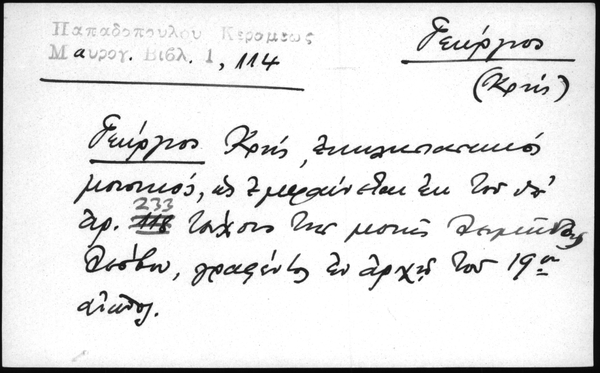 Παπαδοπούλου Κεραμέως
Μαυρογ. Βιβλ. 1, 114
Γεώργιος
(Κρής)
Γεώργιος Κρής, ἐκκλησιαστικός
μουσικός, ὡς ἐμφαίνεται ἐκ τοῦ ὑπ'
233
ἀρ. 118 τεύχους τῆς μονῆς Λειμῶνος
Λέσβου, γραφέντος ἐν ἀρχῇ τοῦ 19ου
αἰῶνος.